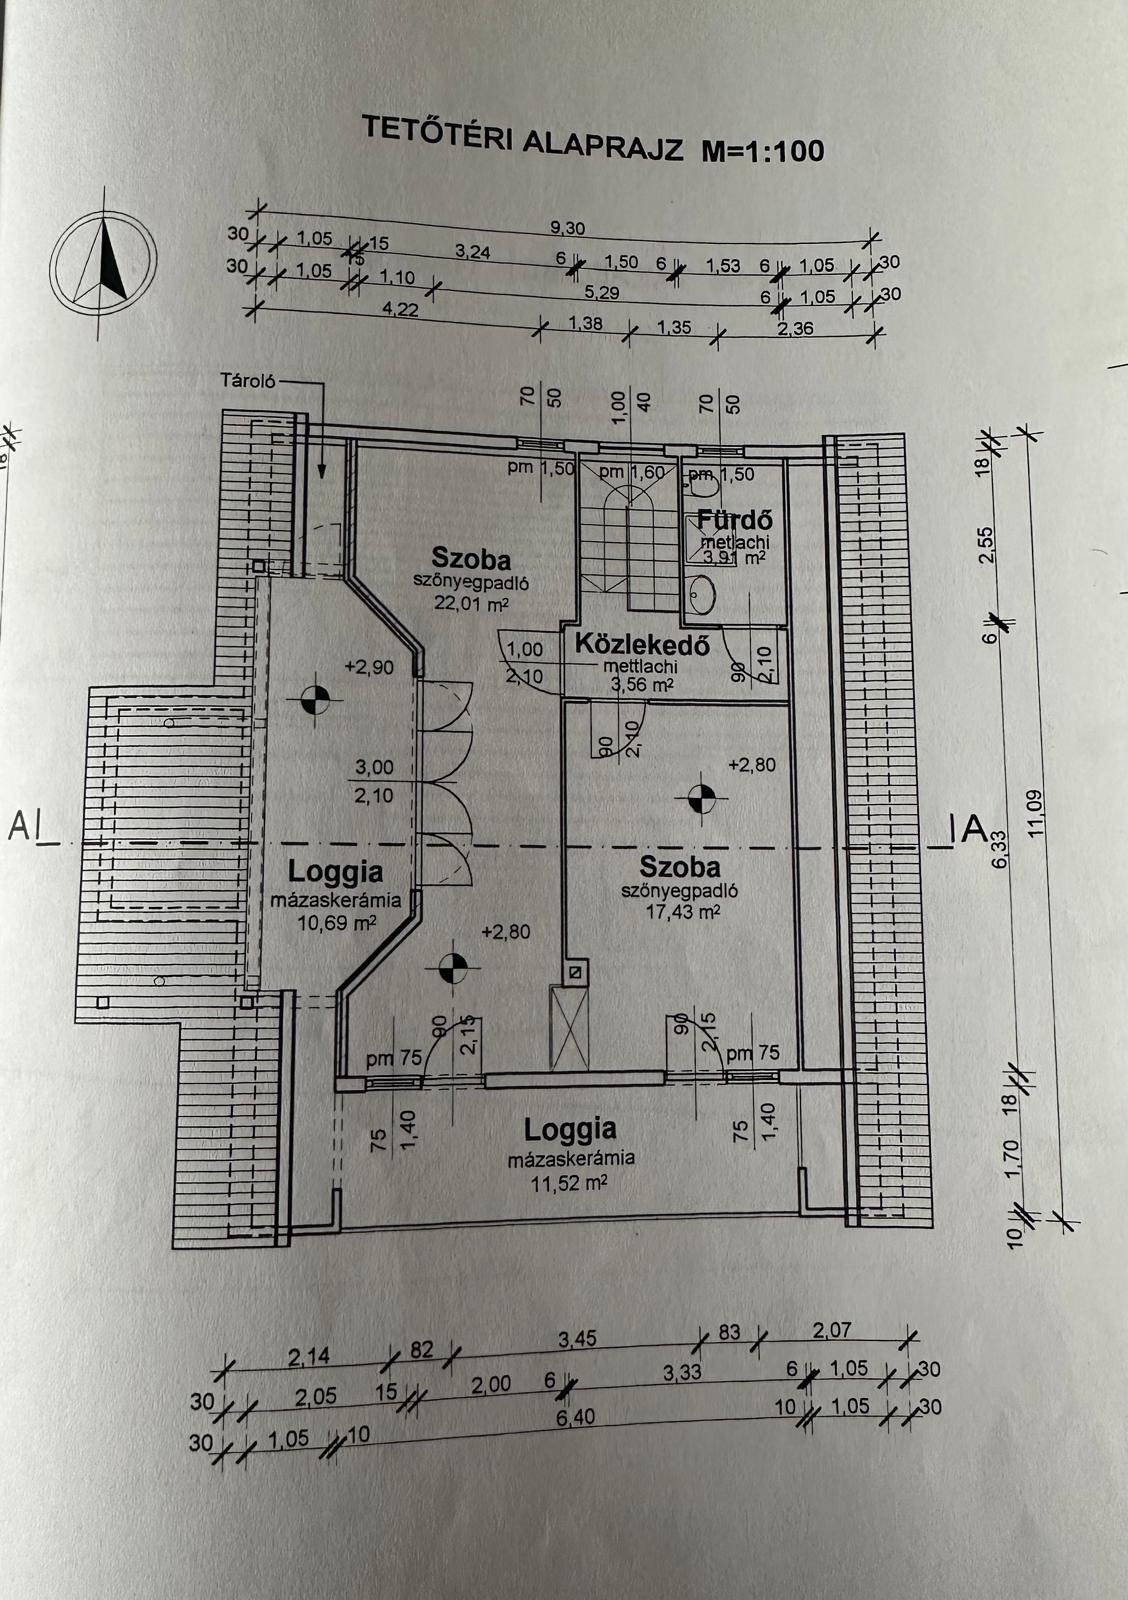 TETŐTÉRI ALAPRAJZ M=1:100
9,30
30 1,05 15 3,24 6 1,50 6 1,53 6 1,05 30
30 1,05 15 1,10 5,29 6 1,05 30
4,22 1,38 1,35 2,36
Tároló
70 50 1,00 40 70 50
pm 1,50 pm 1,60 pm 1,50
18
Fürdő
metlachi
3,91 m²
2,55
Szoba
szőnyegpadló
22,01 m²
6
Közlekedő
mettlachi
3,56 m²
1,00
2,10
90 2,10
+2,90
90 2,10
+2,80
3,00
2,10
11,09
A A
6,33
Loggia
mázaskerámia
10,69 m²
Szoba
szőnyegpadló
17,43 m²
+2,80
90 2,15 90 2,15
pm 75 pm 75
18
75 1,40 75 1,40
Loggia
mázaskerámia
11,52 m²
1,70
10
2,14 82 3,45 83 2,07
30 2,05 15 2,00 6 3,33 6 1,05 30
30 1,05 10 6,40 10 1,05 30